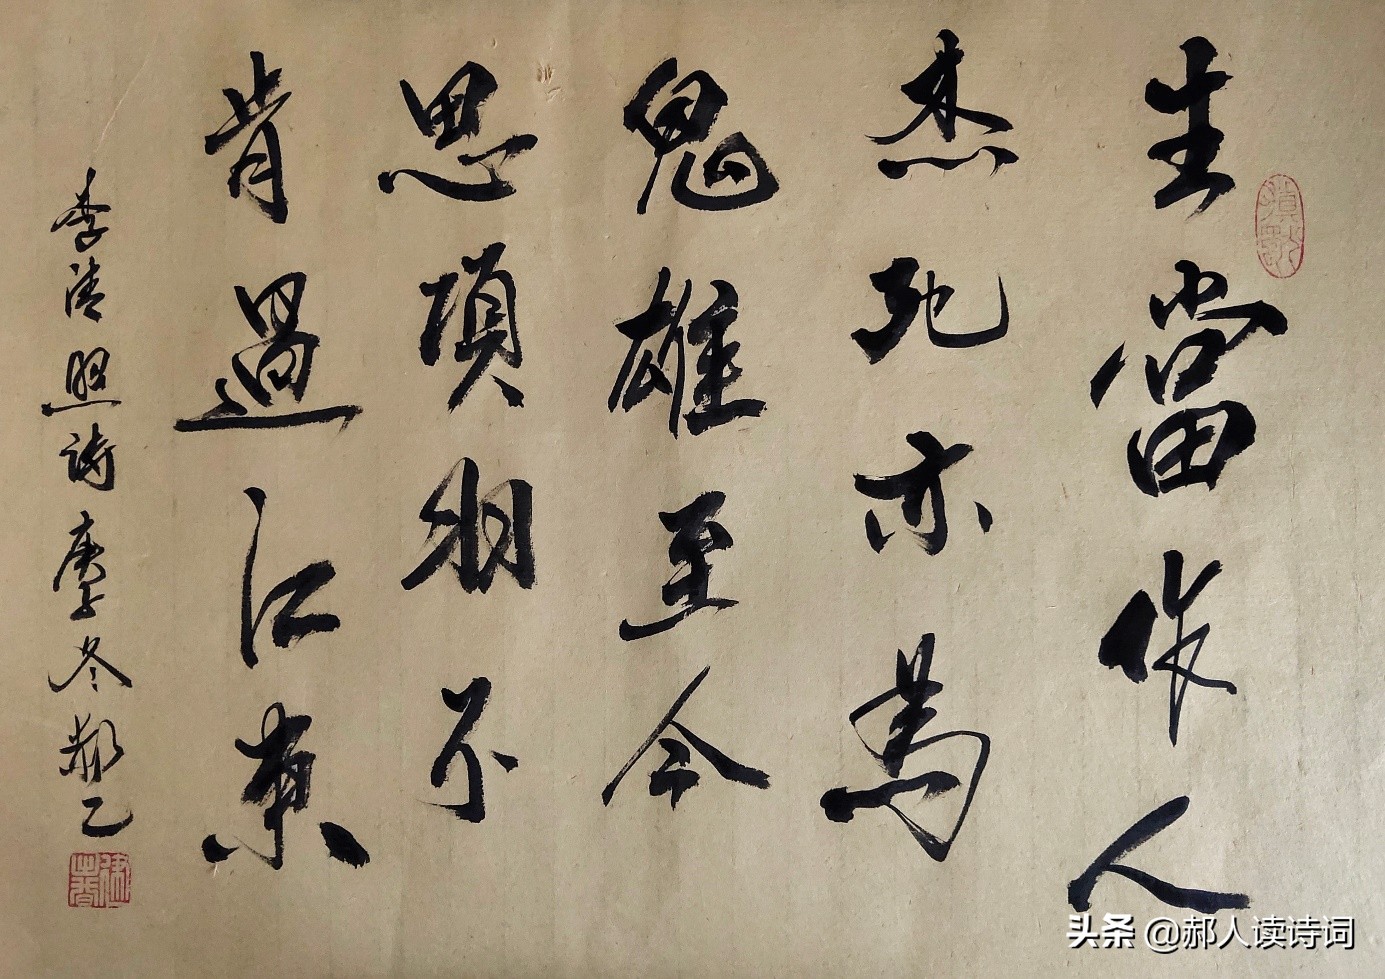 生當作人
杰死亦為
鬼雄至今
思項羽不
肯過江東
李清照詩庚子冬郝乙
头条 @郝人读诗词